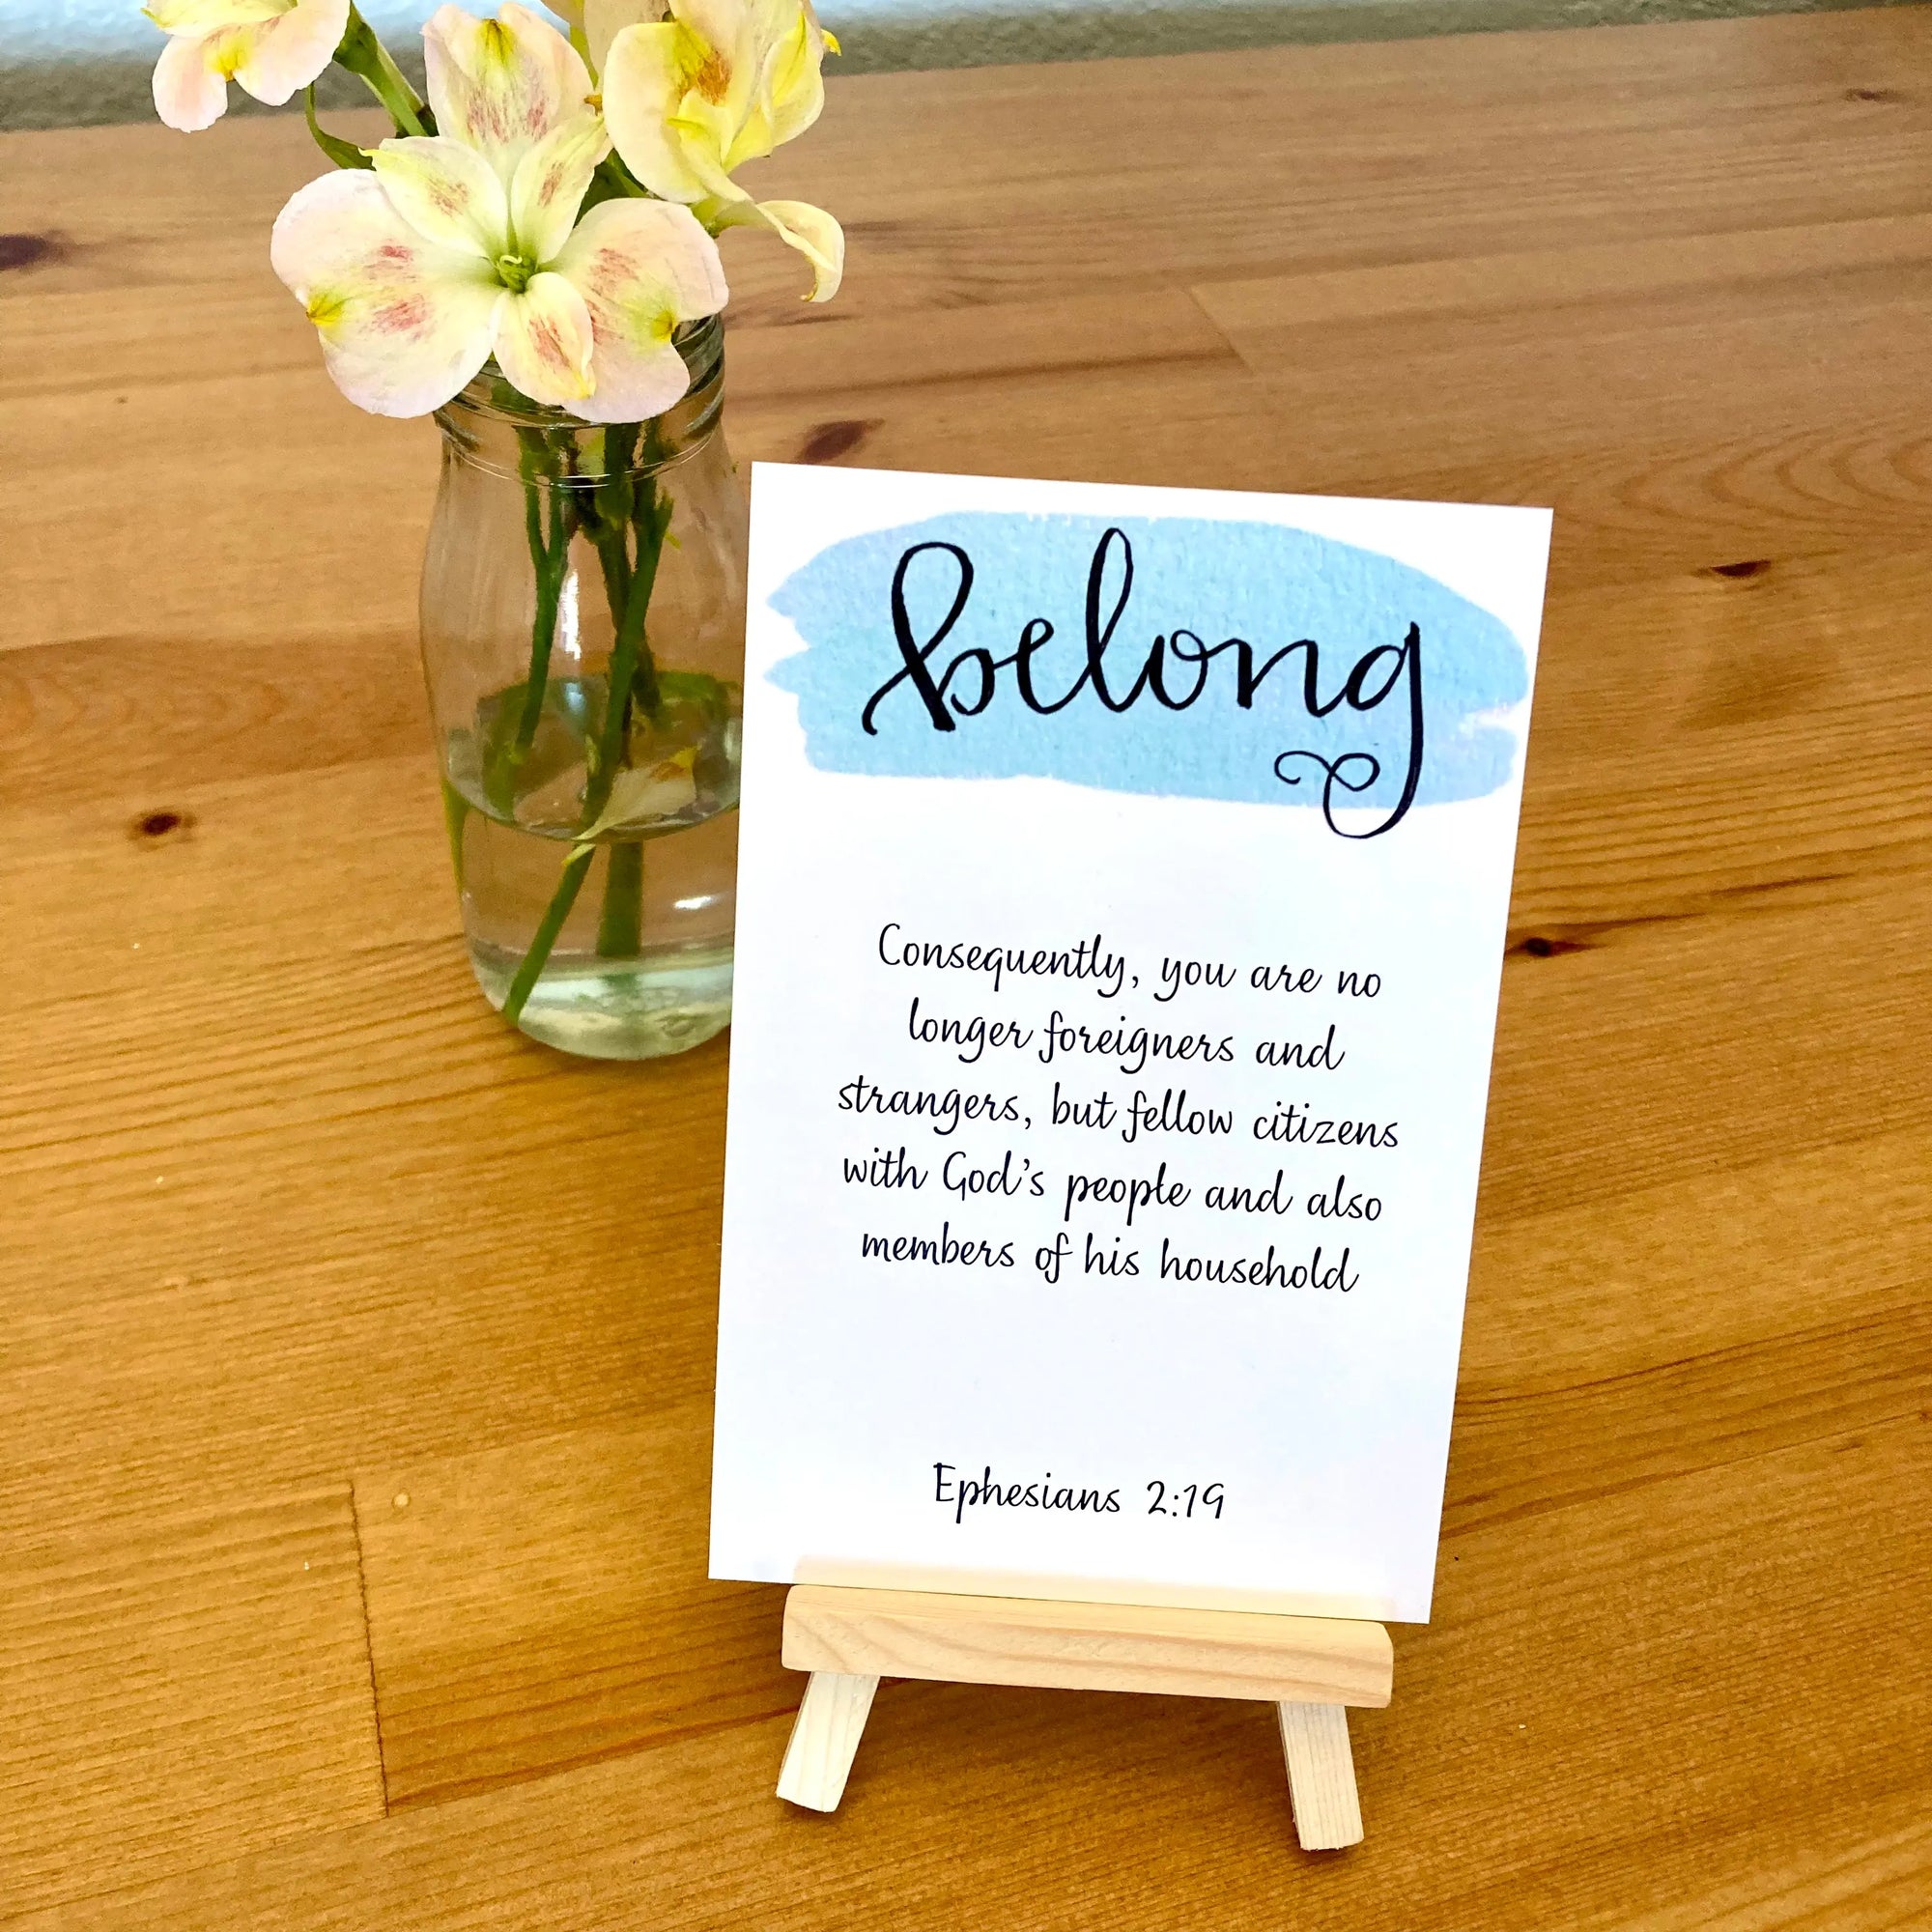 belong
Consequently, you are no
longer foreigners and
strangers, but fellow citizens
with God's people and also
members of his household
Ephesians 2:19